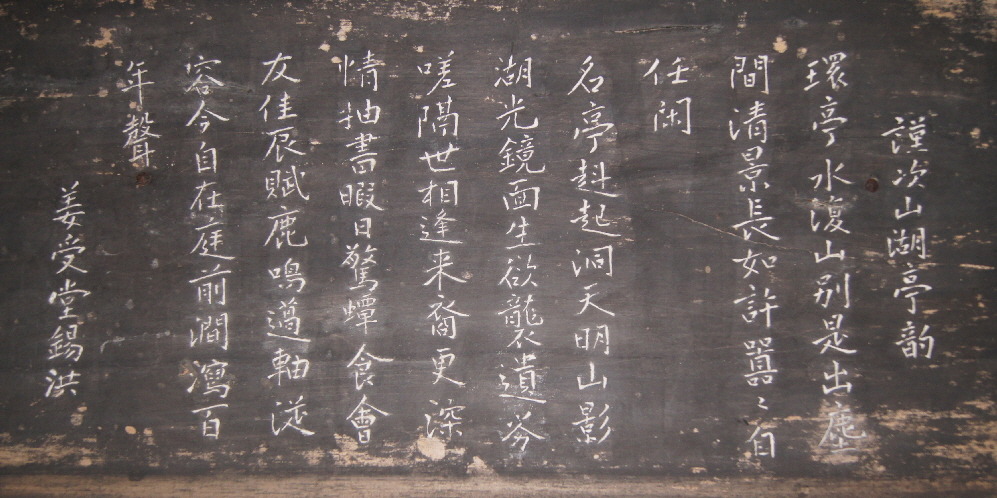 謹次山湖亭韵
環亭水復山別是出塵
間清景長如許囂〻自
任闲
名亭斗起洞天明山影
湖光鏡面生欲寵不遺参
嗟隔世相逢来裔更深
情抽書暇日驚蟫食會
友佳辰賦鹿鳴薖軸從
容今自在庭前澗瀉百
年聲
姜受堂錫洪